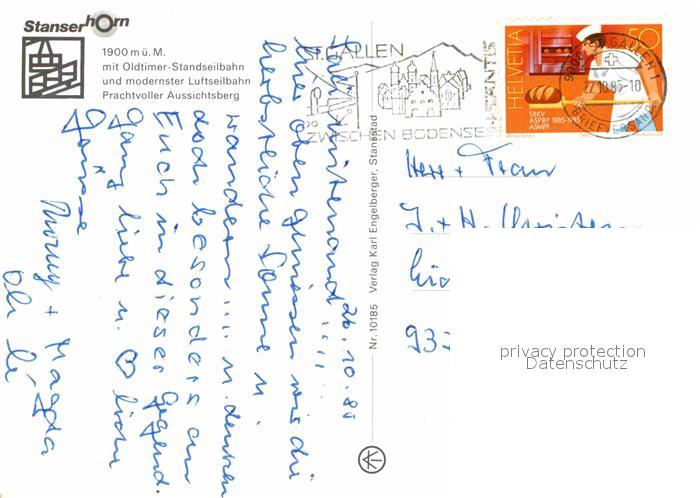 Stanserhorn
1900 m ü. M.
mit Oldtimer-Standseilbahn
und modernster Luftseilbahn
Prachtvoller Aussichtsberg
ST. GALLEN
SÄNTIS
ZWISCHEN BODENSEE +
HELVETIA
50
SBKV
ASPBP 1885-1985
ASMPP
27.10.85-10
BRIEFVERSAND
Nr. 10185 Verlag Karl Engelberger, Stansstad
26.10.85
Hier oben geniessen wir die
herbstliche Sonne u.
wandern!!!! u. denken
doch besonders an
Euch in dieser Gegend.
Ganz liebe u. liche
Grüsse
+ Magda
Herr + Frau
J. + H.
93
privacy protection
Datenschutz